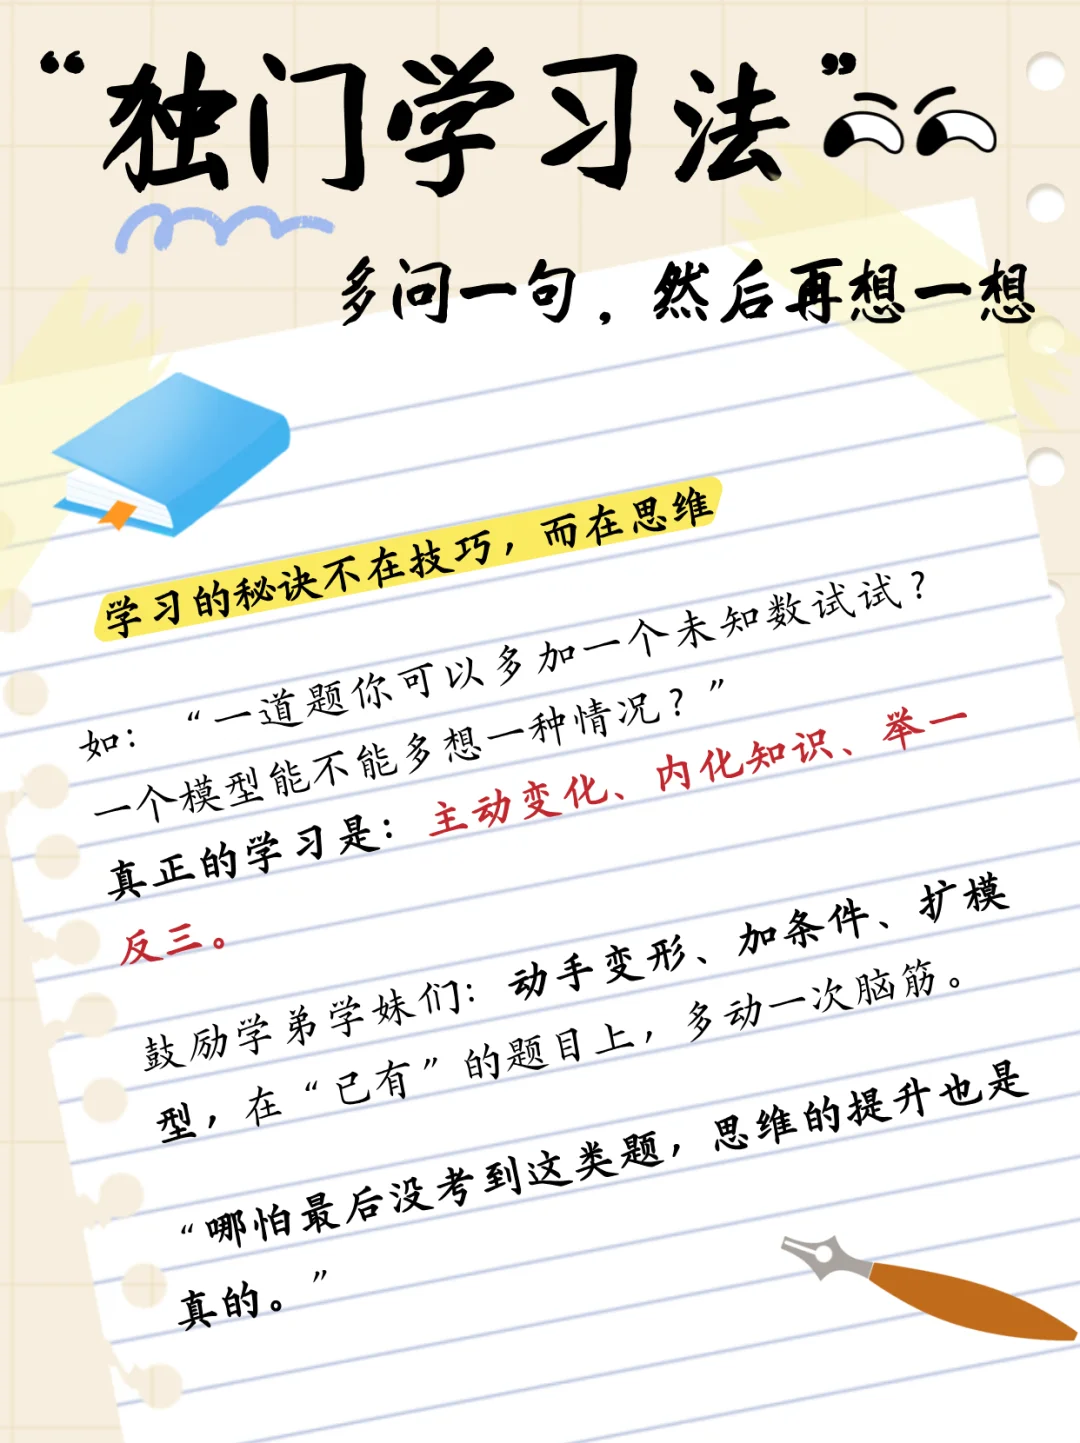 “独门学习法”
多问一句，然后再想一想
学习的秘诀不在技巧，而在思维
如：“一道题你可以多加一个未知数试试？
一个模型能不能多想一种情况？”
真正的学习是：主动变化、内化知识、举一
反三。
鼓励学弟学妹们：动手变形、加条件、扩模
型，在“已有”的题目上，多动一次脑筋。
“哪怕最后没考到这类题，思维的提升也是
真的。”